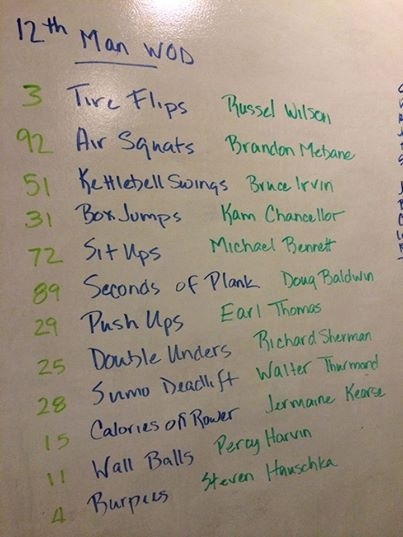 12th Man WOD
3 Tire Flips Russel Wilson
92 Air Squats Brandon Mebane
51 Kettlebell Swings Bruce Irvin
31 Box Jumps Kam Chancellor
72 Sit Ups Michael Bennett
89 Seconds of Plank Doug Baldwin
29 Push Ups Earl Thomas
25 Double Unders Richard Sherman
28 Sumo Deadlift Walter Thurmond
15 Calories on Rower Jermaine Kearse
11 Wall Balls Percy Harvin
4 Burpees Steven Hauschka